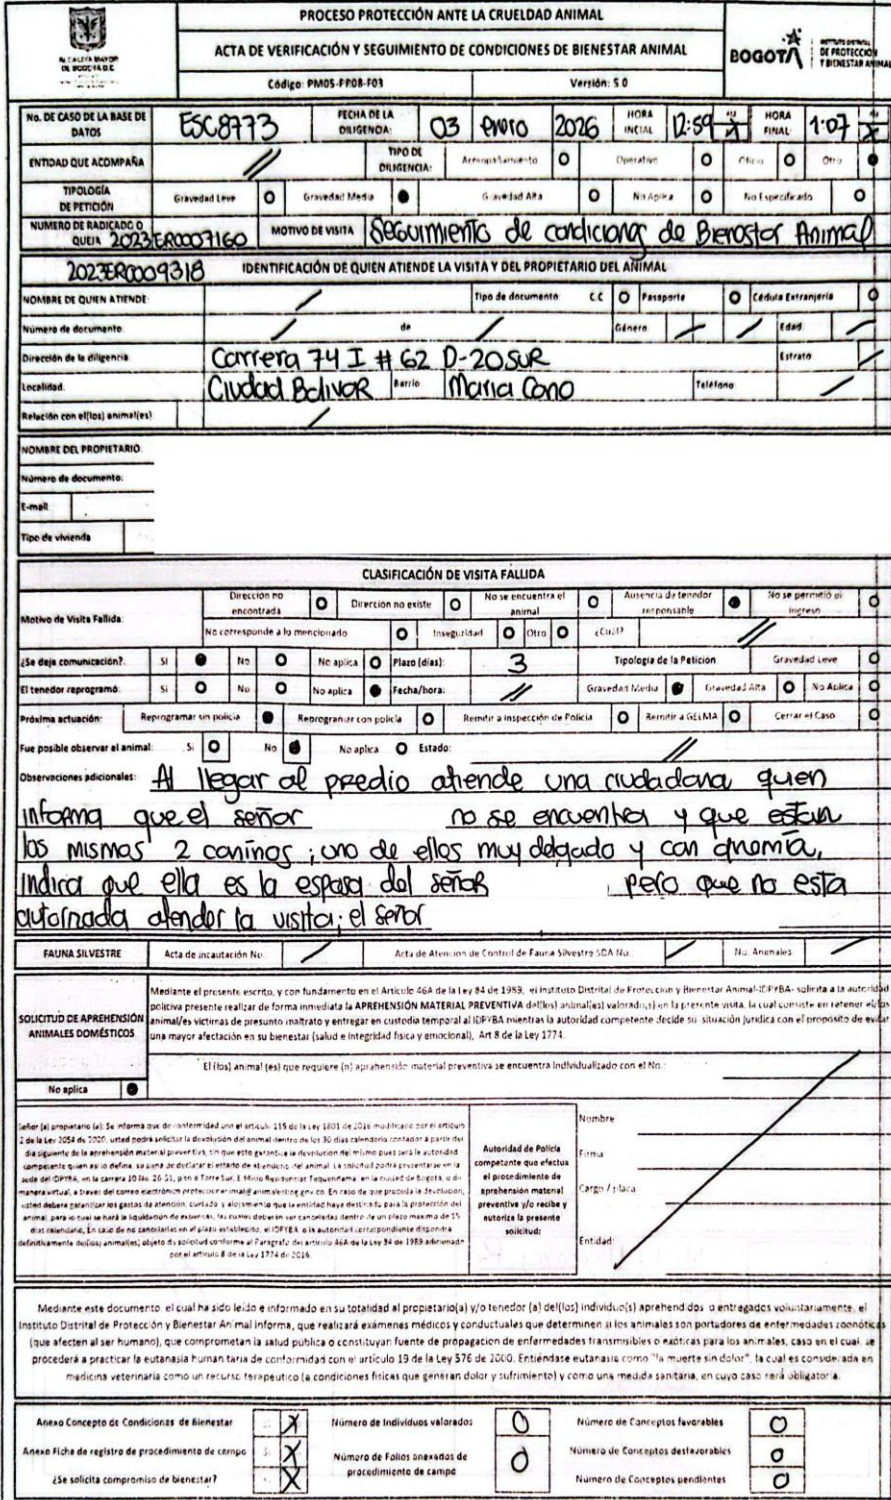 ALCALDÍA MAYOR
DE BOGOTÁ D.C.
PROCESO PROTECCIÓN ANTE LA CRUELDAD ANIMAL
ACTA DE VERIFICACIÓN Y SEGUIMIENTO DE CONDICIONES DE BIENESTAR ANIMAL
Código: PM05-PR08-F03 Versión: 5 0
BOGOTÁ INSTITUTO DISTRITAL DE PROTECCIÓN Y BIENESTAR ANIMAL
No. DE CASO DE LA BASE DE DATOS ESC8773 FECHA DE LA DILIGENCIA: 03 enero 2026 HORA INCIAL 12:59 X HORA FINAL: 1:07 X
ENTIDAD QUE ACOMPAÑA // TIPO DE DILIGENCIA: Acompañamiento O Operativo O Oficio O Otro ●
TIPOLOGÍA DE PETICIÓN Gravedad Leve O Gravedad Media ● Gravedad Alta O No Aplica O No Especificado O
NUMERO DE RADICADO O QUEJA 2023ER0007160 MOTIVO DE VISITA Seguimiento de condiciones de Bienestar Animal
2023ER0009318 IDENTIFICACIÓN DE QUIEN ATIENDE LA VISITA Y DEL PROPIETARIO DEL ANIMAL
NOMBRE DE QUIEN ATIENDE: / Tipo de documento C.C O Pasaporte O Cédula Extranjería O
Número de documento / de / Género / / Edad /
Dirección de la diligencia Carrera 74 I # 62 D-20 SUR Estrato /
Localidad. Ciudad Bolivar Barrio Maria Cano Teléfono /
Relación con el(los) animal(es) /
NOMBRE DEL PROPIETARIO:
Número de documento:
E-mail
Tipo de vivienda
CLASIFICACIÓN DE VISITA FALLIDA
Motivo de Visita Fallida: Dirección no encontrada O Dirección no existe O No se encuentra el animal O Ausencia de tenedor responsable ● No se permitió el ingreso O
No corresponde a lo mencionado O Inseguridad O Otro O ¿Cuál? //
¿Se deja comunicación?. Si ● No O No aplica O Plazo (días): 3 Tipología de la Petición Gravedad Leve O
El tenedor reprogramó: Si O No O No aplica ● Fecha/hora: // Gravedad Media ● Gravedad Alta O No Aplica O
Próxima actuación: Reprogramar sin policía ● Reprogramar con policía O Remitir a Inspección de Policía O Remitir a GELMA O Cerrar el Caso O
Fue posible observar el animal: Si O No ● No aplica O Estado: //
Observaciones adicionales: Al llegar al predio atiende una ciudadana quien
informa que el señor no se encuentra y que estan
los mismos 2 caninos; uno de ellos muy delgado y con anemia,
indica que ella es la esposa del señor pero que no esta
autorizada atender la visita; el señor
FAUNA SILVESTRE Acta de incautación No.: / Acta de Atención de Control de Fauna Silvestre SDA No.: / No. Animales: /
SOLICITUD DE APREHENSIÓN ANIMALES DOMÉSTICOS
Mediante el presente escrito, y con fundamento en el Artículo 46A de la Ley 84 de 1989, el Instituto Distrital de Protección y Bienestar Animal-IDPYBA- solicita a la autoridad
policiva presente realizar de forma inmediata la APREHENSIÓN MATERIAL PREVENTIVA del(los) animal(es) valorado(s) en la presente visita, la cual consiste en retener el/los
animal/es víctimas de presunto maltrato y entregar en custodia temporal al IDPYBA mientras la autoridad competente decide su situación jurídica con el propósito de evitar
una mayor afectación en su bienestar (salud e integridad física y emocional), Art 8 de la Ley 1774.
El (los) animal (es) que requiere (n) aprehensión material preventiva se encuentra individualizado con el No.:
No aplica ●
Señor (a) propietario (a): Se informa que de conformidad con el artículo 119 de la Ley 1801 de 2016 modificado por el artículo
2 de la Ley 2054 de 2020, usted podrá solicitar la devolución del animal dentro de los 30 días calendario contados a partir del
día siguiente de la aprehensión material preventiva, sin que esto garantice la devolución del mismo pues será la autoridad
competente quien así lo defina, so pena de declarar el estado de abandono del animal. La solicitud podrá presentarse en la
sede del IDPYBA, en la carrera 10 No. 26-51, piso 8 Torre Sur, Edificio Residencias Tequendama, en la ciudad de Bogotá, o de
manera virtual, a través del correo electrónico
En caso de que proceda la devolución,
usted deberá garantizar los gastos de atención, cuidado y alojamiento que la entidad haya destinado para la protección del
animal, para lo cual se hará la liquidación de expensas, las cuales deberán ser canceladas dentro de un plazo máximo de 15
días calendario, En caso de no cancelarlas en el plazo establecido, el IDPYBA o la autoridad correspondiente dispondrá
definitivamente del(los) animal(es) objeto de solicitud conforme al Parágrafo del artículo 46A de la Ley 84 de 1989 adicionado
por el artículo 8 de la Ley 1774 de 2016.
Autoridad de Policía competente que efectúa el procedimiento de aprehensión material preventiva y/o recibe y autoriza la presente solicitud:
Nombre
Firma
Cargo / placa
Entidad:
Mediante este documento, el cual ha sido leído e informado en su totalidad al propietario(a) y/o tenedor (a) del(los) individuo(s) aprehendidos o entregados voluntariamente, el
Instituto Distrital de Protección y Bienestar Animal informa, que realizará exámenes médicos y conductuales que determinen si los animales son portadores de enfermedades zoonóticas
(que afecten al ser humano), que comprometan la salud publica o constituyan fuente de propagacion de enfermedades transmisibles o exóticas para los animales, caso en el cual, se
procederá a practicar la eutanasia humanitaria de conformidad con el artículo 19 de la Ley 576 de 2000. Entiéndase eutanasia como "la muerte sin dolor", la cual es considerada en
medicina veterinaria como un recurso terapéutico (a condiciones físicas que generan dolor y sufrimiento) y como una medida sanitaria, en cuyo caso será obligatoria.
Anexo Concepto de Condiciones de Bienestar X Número de Individuos valorados 0 Número de Conceptos favorables 0
Anexo Ficha de registro de procedimiento de campo Si X Número de Folios anexados de procedimiento de campo 0 Número de Conceptos desfavorables 0
¿Se solicita compromiso de bienestar? X Numero de Conceptos pendientes 0